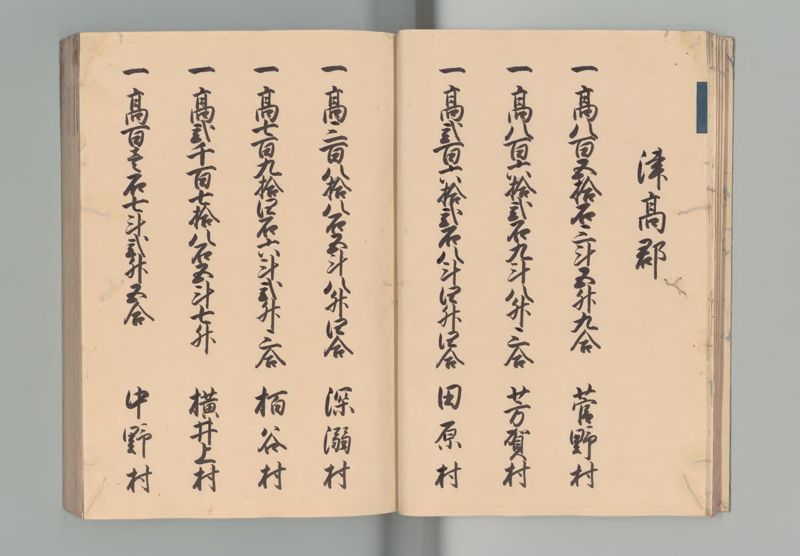 津高郡
一 高八百五拾石三斗五升九合 菅野村
一 高八百六拾弐石九斗八升三合 芳賀村
一 高弐百六拾弐石八斗四升四合 田原村
一 高三百八拾八石五斗八升四合 深溺村
一 高七百九拾四石六斗弐升三合 栢谷村
一 高弐千百七拾八石五斗七升 横井上村
一 高百壱石七斗弐升五合 中野村